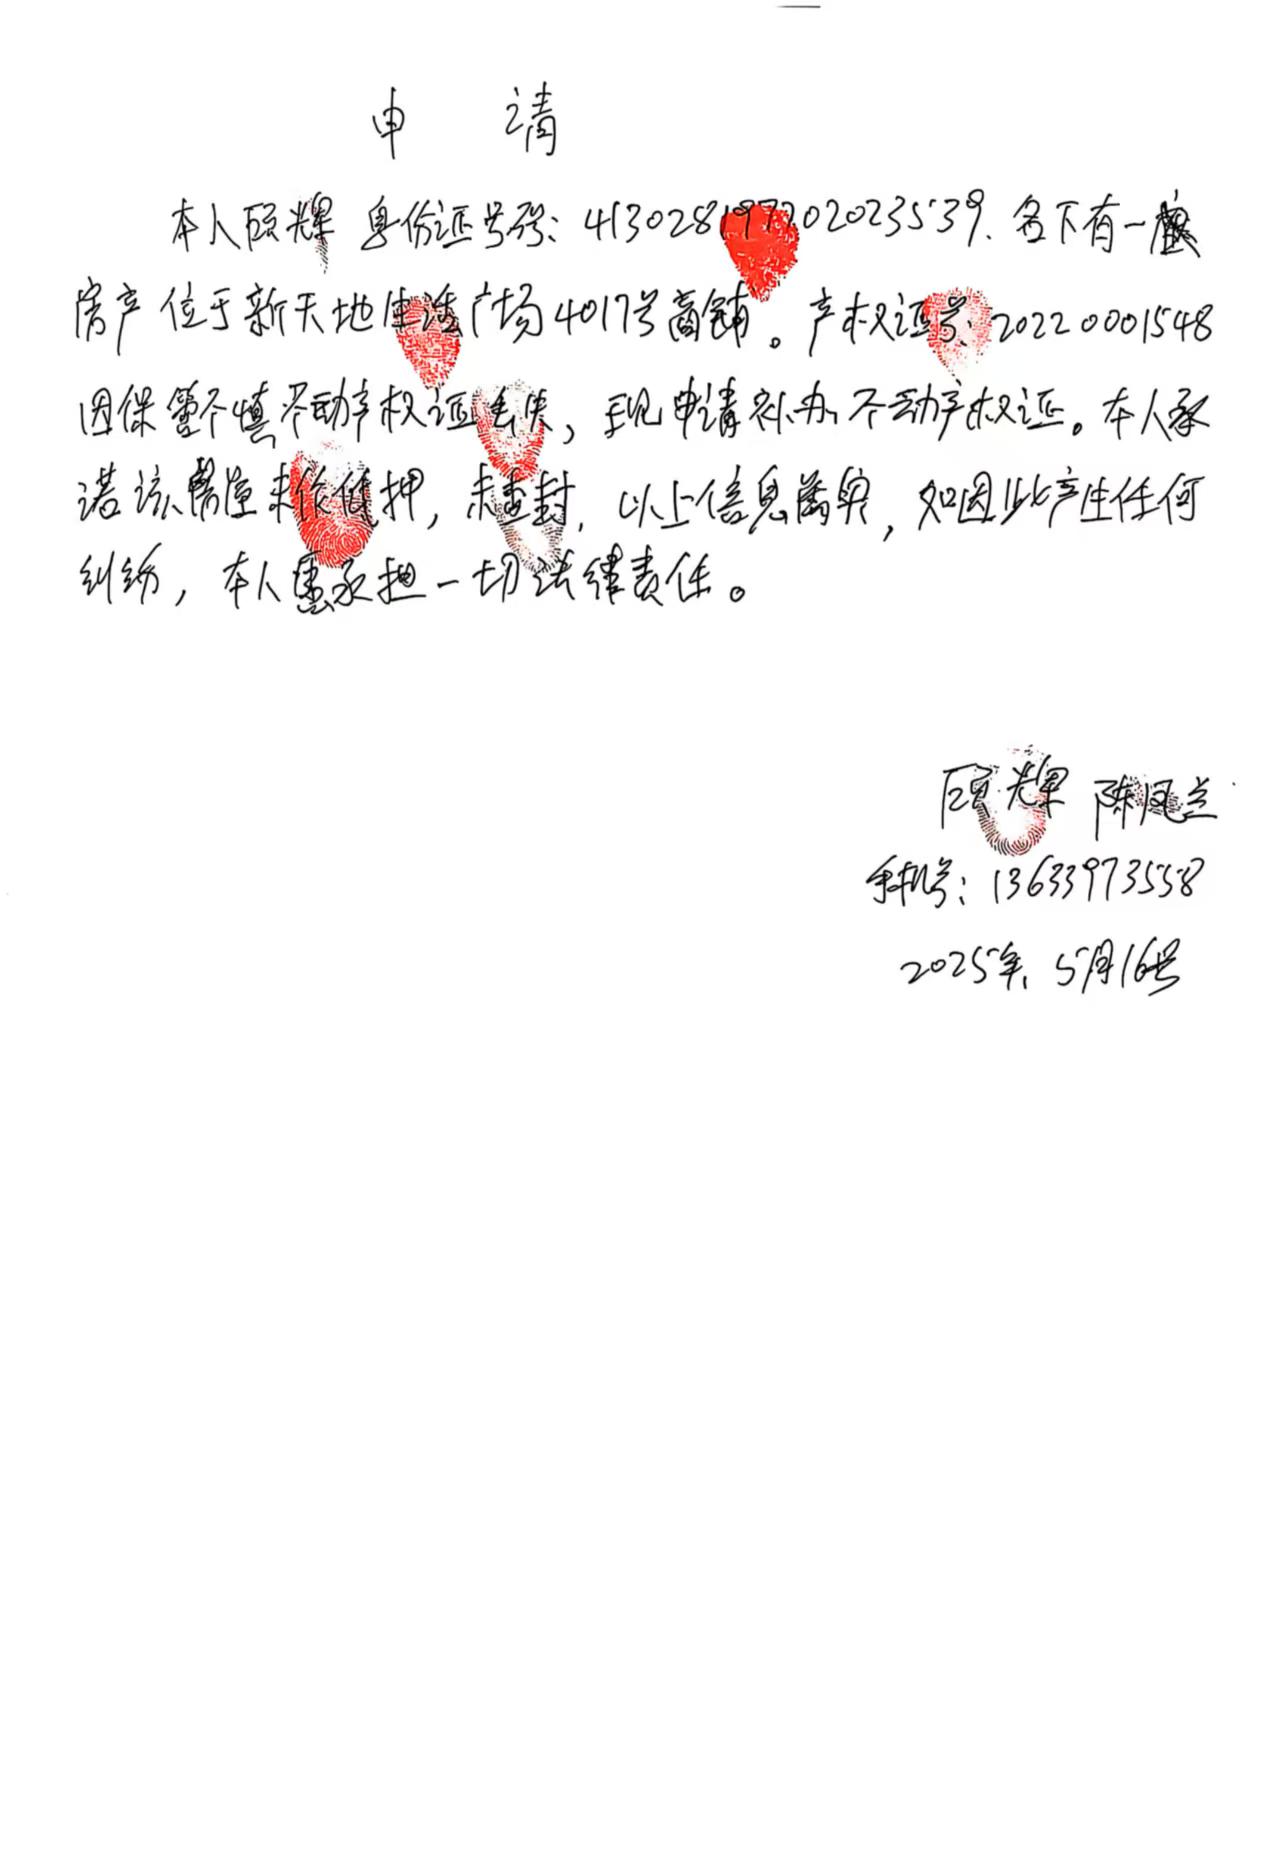 申 请
本人顾辉 身份证号码：413028197202023539. 名下有一处
房产 位于新天地生活广场4017号商铺。产权证号：20220001548
因保管不慎不动产权证丢失，现申请补办不动产权证。本人承
诺该房屋未作抵押，未查封，以上信息属实，如因此产生任何
纠纷，本人愿承担一切法律责任。
顾辉 陈凤兰
手机号：13633973558
2025年，5月16号